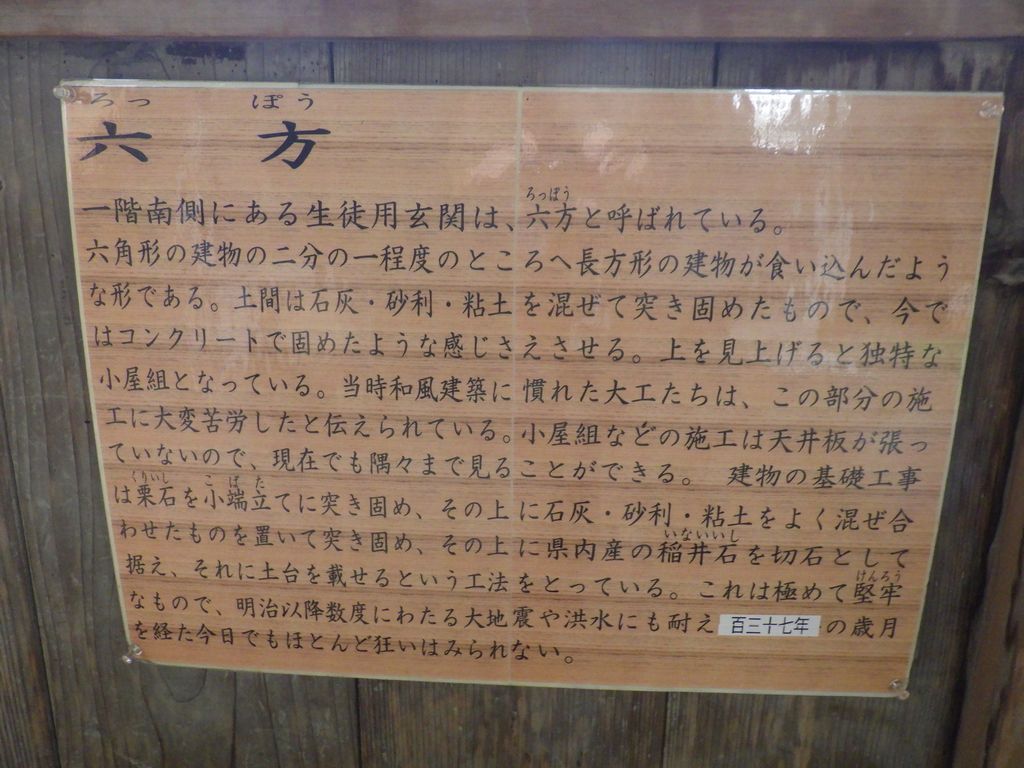 ろっ ぽう
六 方
ろっぽう
一階南側にある生徒用玄関は、六方と呼ばれている。
六角形の建物の二分の一程度のところへ長方形の建物が食い込んだよう
な形である。土間は石灰・砂利・粘土を混ぜて突き固めたもので、今で
はコンクリートで固めたような感じさえさせる。上を見上げると独特な
小屋組となっている。当時和風建築に慣れた大工たちは、この部分の施
工に大変苦労したと伝えられている。小屋組などの施工は天井板が張っ
ていないので、現在でも隅々まで見ることができる。 建物の基礎工事
くりいし こばた
は栗石を小端立てに突き固め、その上に石灰・砂利・粘土をよく混ぜ合
いないいし
わせたものを置いて突き固め、その上に県内産の稲井石を切石として
けんろう
据え、それに土台を載せるという工法をとっている。これは極めて堅牢
なもので、明治以降数度にわたる大地震や洪水にも耐え百三十七年の歳月
を経た今日でもほとんど狂いはみられない。